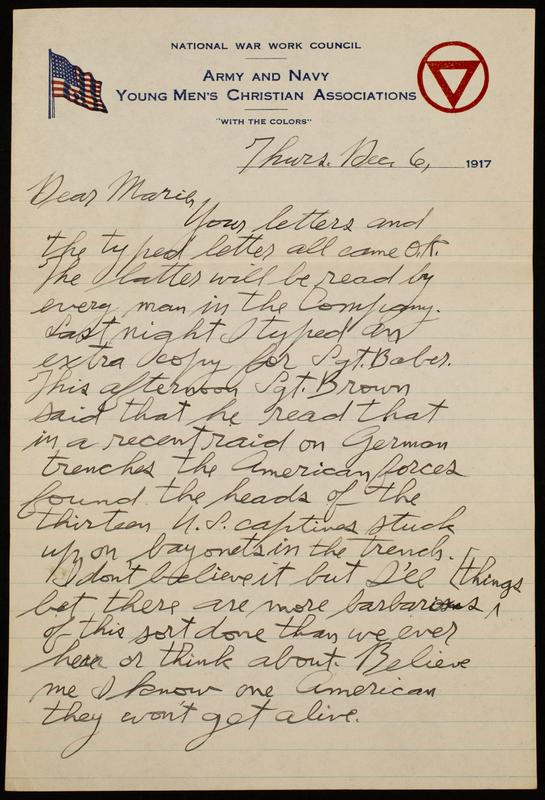 NATIONAL WAR WORK COUNCIL
ARMY AND NAVY
YOUNG MEN'S CHRISTIAN ASSOCIATIONS
"WITH THE COLORS"
Thurs. Dec. 6, 1917
Dear Marie,
Your letters and
the typed letter all came O.K.
The latter will be read by
every man in the Company.
Last night I typed an
extra copy for Sgt. Baber.
This afternoon Sgt. Brown
said that he read that
in a recent raid on German
trenches the American forces
found the heads of the
thirteen U.S. captives stuck
up on bayonets in the trench.
I don't believe it but I'll [things
bet there are more barbarous ^
of this sort done than we ever
hear or think about. Believe
me I know one American
they won't get alive.